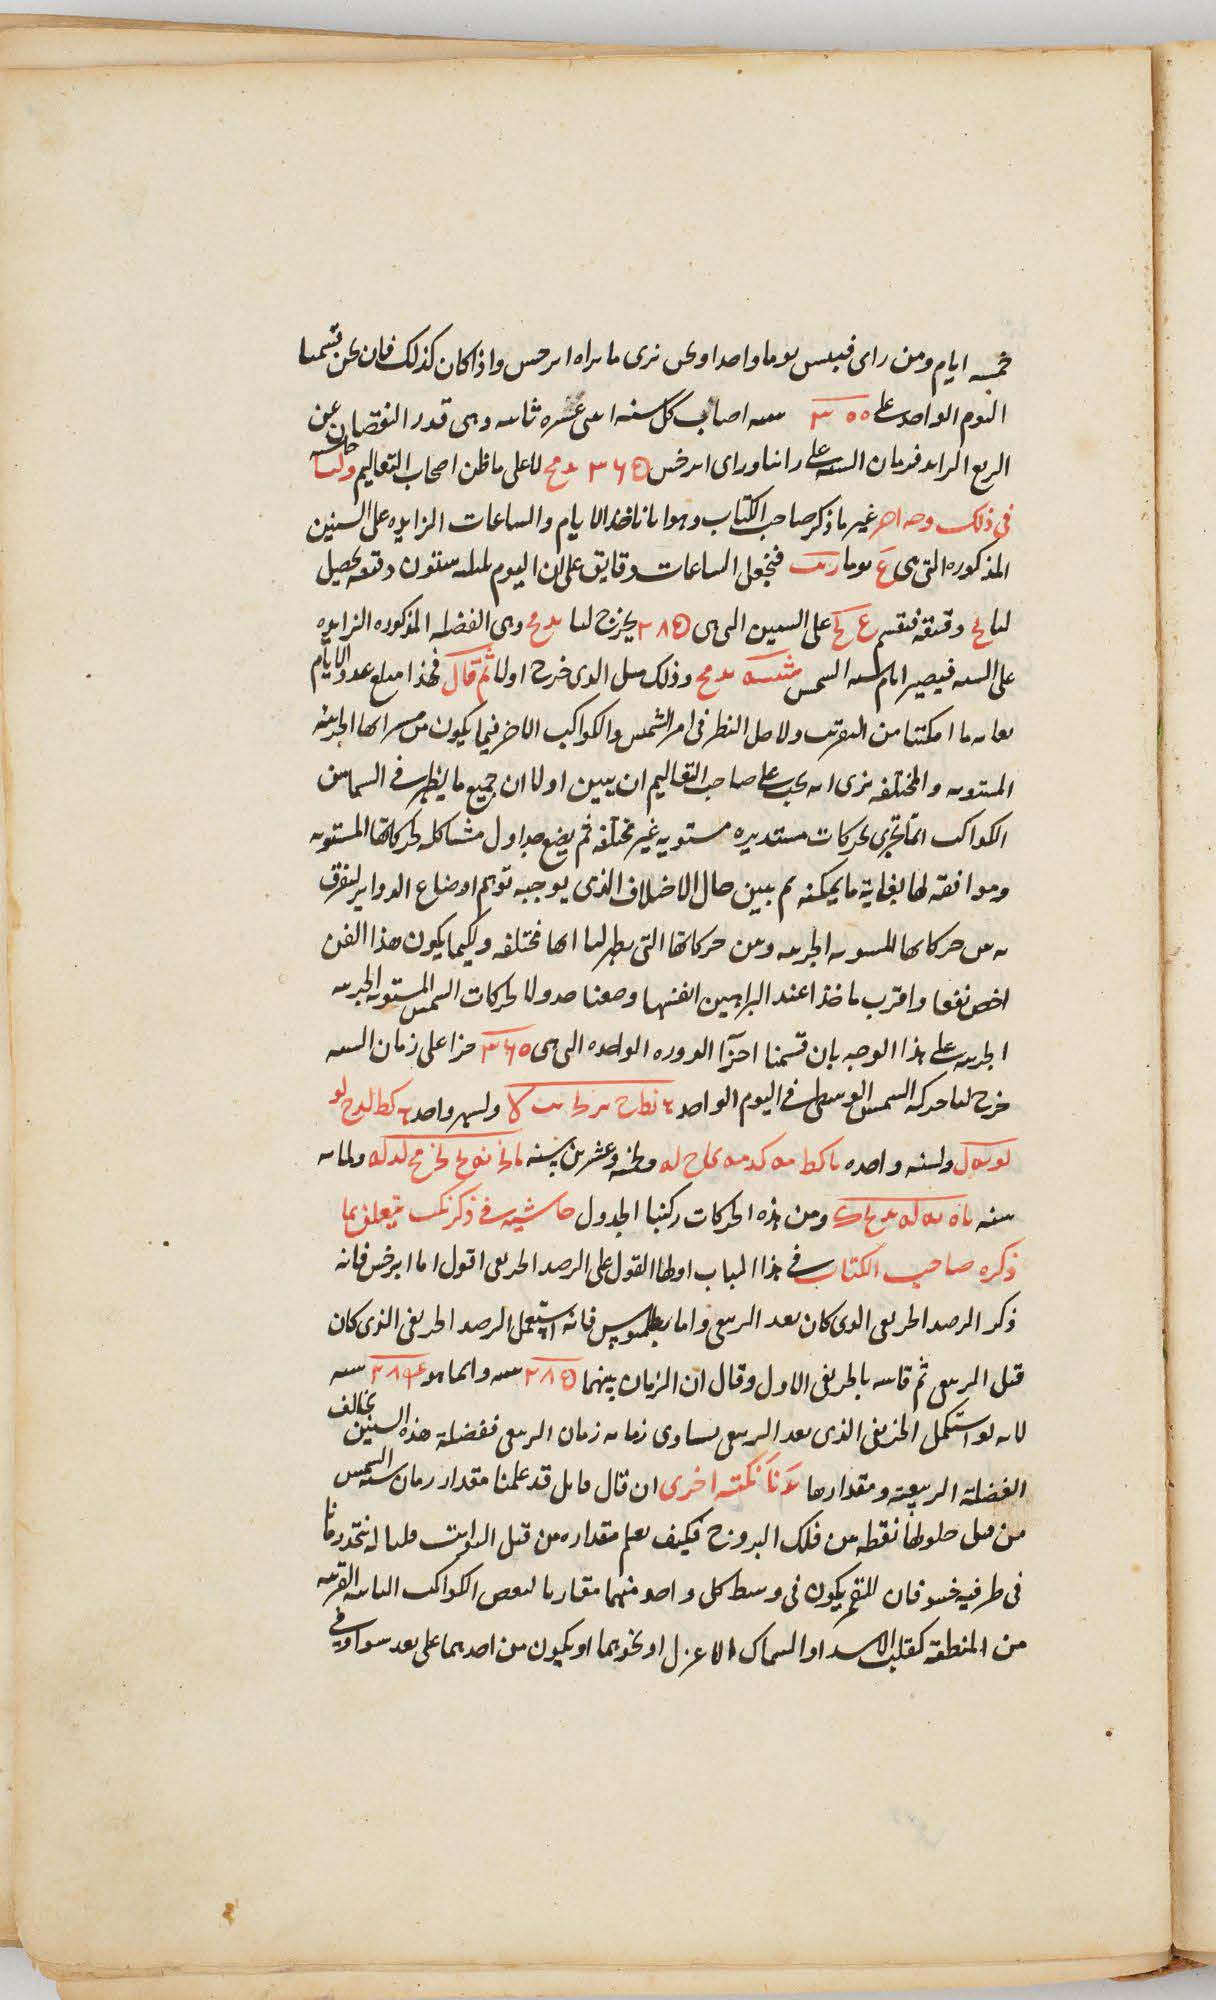 خمسه ايام ومن راى فيبس يوما واحدا ونحن نرى ما يراه ابرخس واذا كان كذلك فان نحن قسمنا
اليوم الواحد على ٣٠٠ سنه اصاب كل سنه اثنى عشره ثانيه وهى قدر النقصان عن
الربع الزايد فزمان السنه على راينا وراى ابرخس ٣٦٥ يد مح لا على ما ظن اصحاب التعاليم حاشيه ولنا
فى ذلك وجه اخر غير ما ذكر صاحب الكتاب وهو انا ناخذ الايام والساعات الزايده على السنين
المذكوره التى هى ع يوما فنجعل الساعات دقايق على ان اليوم بليله ستون دقيقه يحصل
لنا دقيقه فنقسم ع على السنين التى هى ٢٨٥ يخرج لنا يد مح وهى الفضله المذكوره الزايده
على السنه فيصير ايام سنه الشمس شسه يد مح وذلك مثل الذى خرج اولا ثم قال فهذا مبلغ عدد الايام
بغايه ما امكننا من التقريب ولاجل النظر فى امر الشمس والكواكب الاخر فيما يكون من مسيراتها الجزئيه
المستويه والمختلفه نرى انه يجب على صاحب التعاليم ان يبين اولا ان جميع ما يظهر فى السما من
الكواكب انما تجرى بحركات مستديره مستويه غير مختلفه ثم يضع جداول مشاكله لحركاتها المستويه
وموافقه لها بغاية ما يمكنه ثم يبين حال الاختلاف الذى يوجبه توهم اوضاع الدواير ليفرق
بين حركاتها المستويه الجزئيه وبين حركاتها التى يظهر لنا انها مختلفه ولكيما يكون هذا الفن
اخص نفعا واقرب ماخذا عند البراهين انفسها وضعنا جدولا لحركات الشمس المستويه الجزئيه
الجزئيه على هذا الوجه بان قسمنا اجزآ الدوره الواحده التى هى ٣٦٠ جزا على زمان السنه
خرج لنا حركه الشمس الوسطى فى اليوم الواحد نط ح يز يج يب لا ولشهر واحد كط لد ح لو
لو يه ل ولسنه واحده شنط مه كد مه كا ح له ولخمسه وعشرين سنه
سنه ومن هذه الحركات ركبنا الجدول حاشيه فى ذكر نكت يتعلق بما
ذكره صاحب الكتاب فى هذا الباب اولها القول على الرصد الخريفى اقول اما ابرخس فانه
ذكر الرصد الخريفى الذى كان بعد الربيعى واما بطلميوس فانه استعمل الرصد الخريفى الذى كان
قبل الربيعى ثم قاسه بالخريفى الاول وقال ان الزمان بينهما ٢٨٥ سنه وانما هو سنه
لانه لو استكمل الخريفى الذى بعد الربيعى لساوى زمانه زمان الربيعى ففضلة هذه السنين يخالف
الفضلة الربيعيه ومقدارها نكته اخرى ان قال قايل قد علمنا مقدار زمان سنه الشمس
من قبل حلولها نقطه من فلك البروج فكيف نعلم مقداره من قبل الثوابت قلنا له نتحد زمانا
فى طرفيه خسوفان للقمر يكون فى وسط كل واحد منهما مقارنا لبعض الكواكب الثابته القريبه
من المنطقه كقلب الاسد او السماك الاعزل او نحوهما او يكون من احدهما على بعد سوا وفى